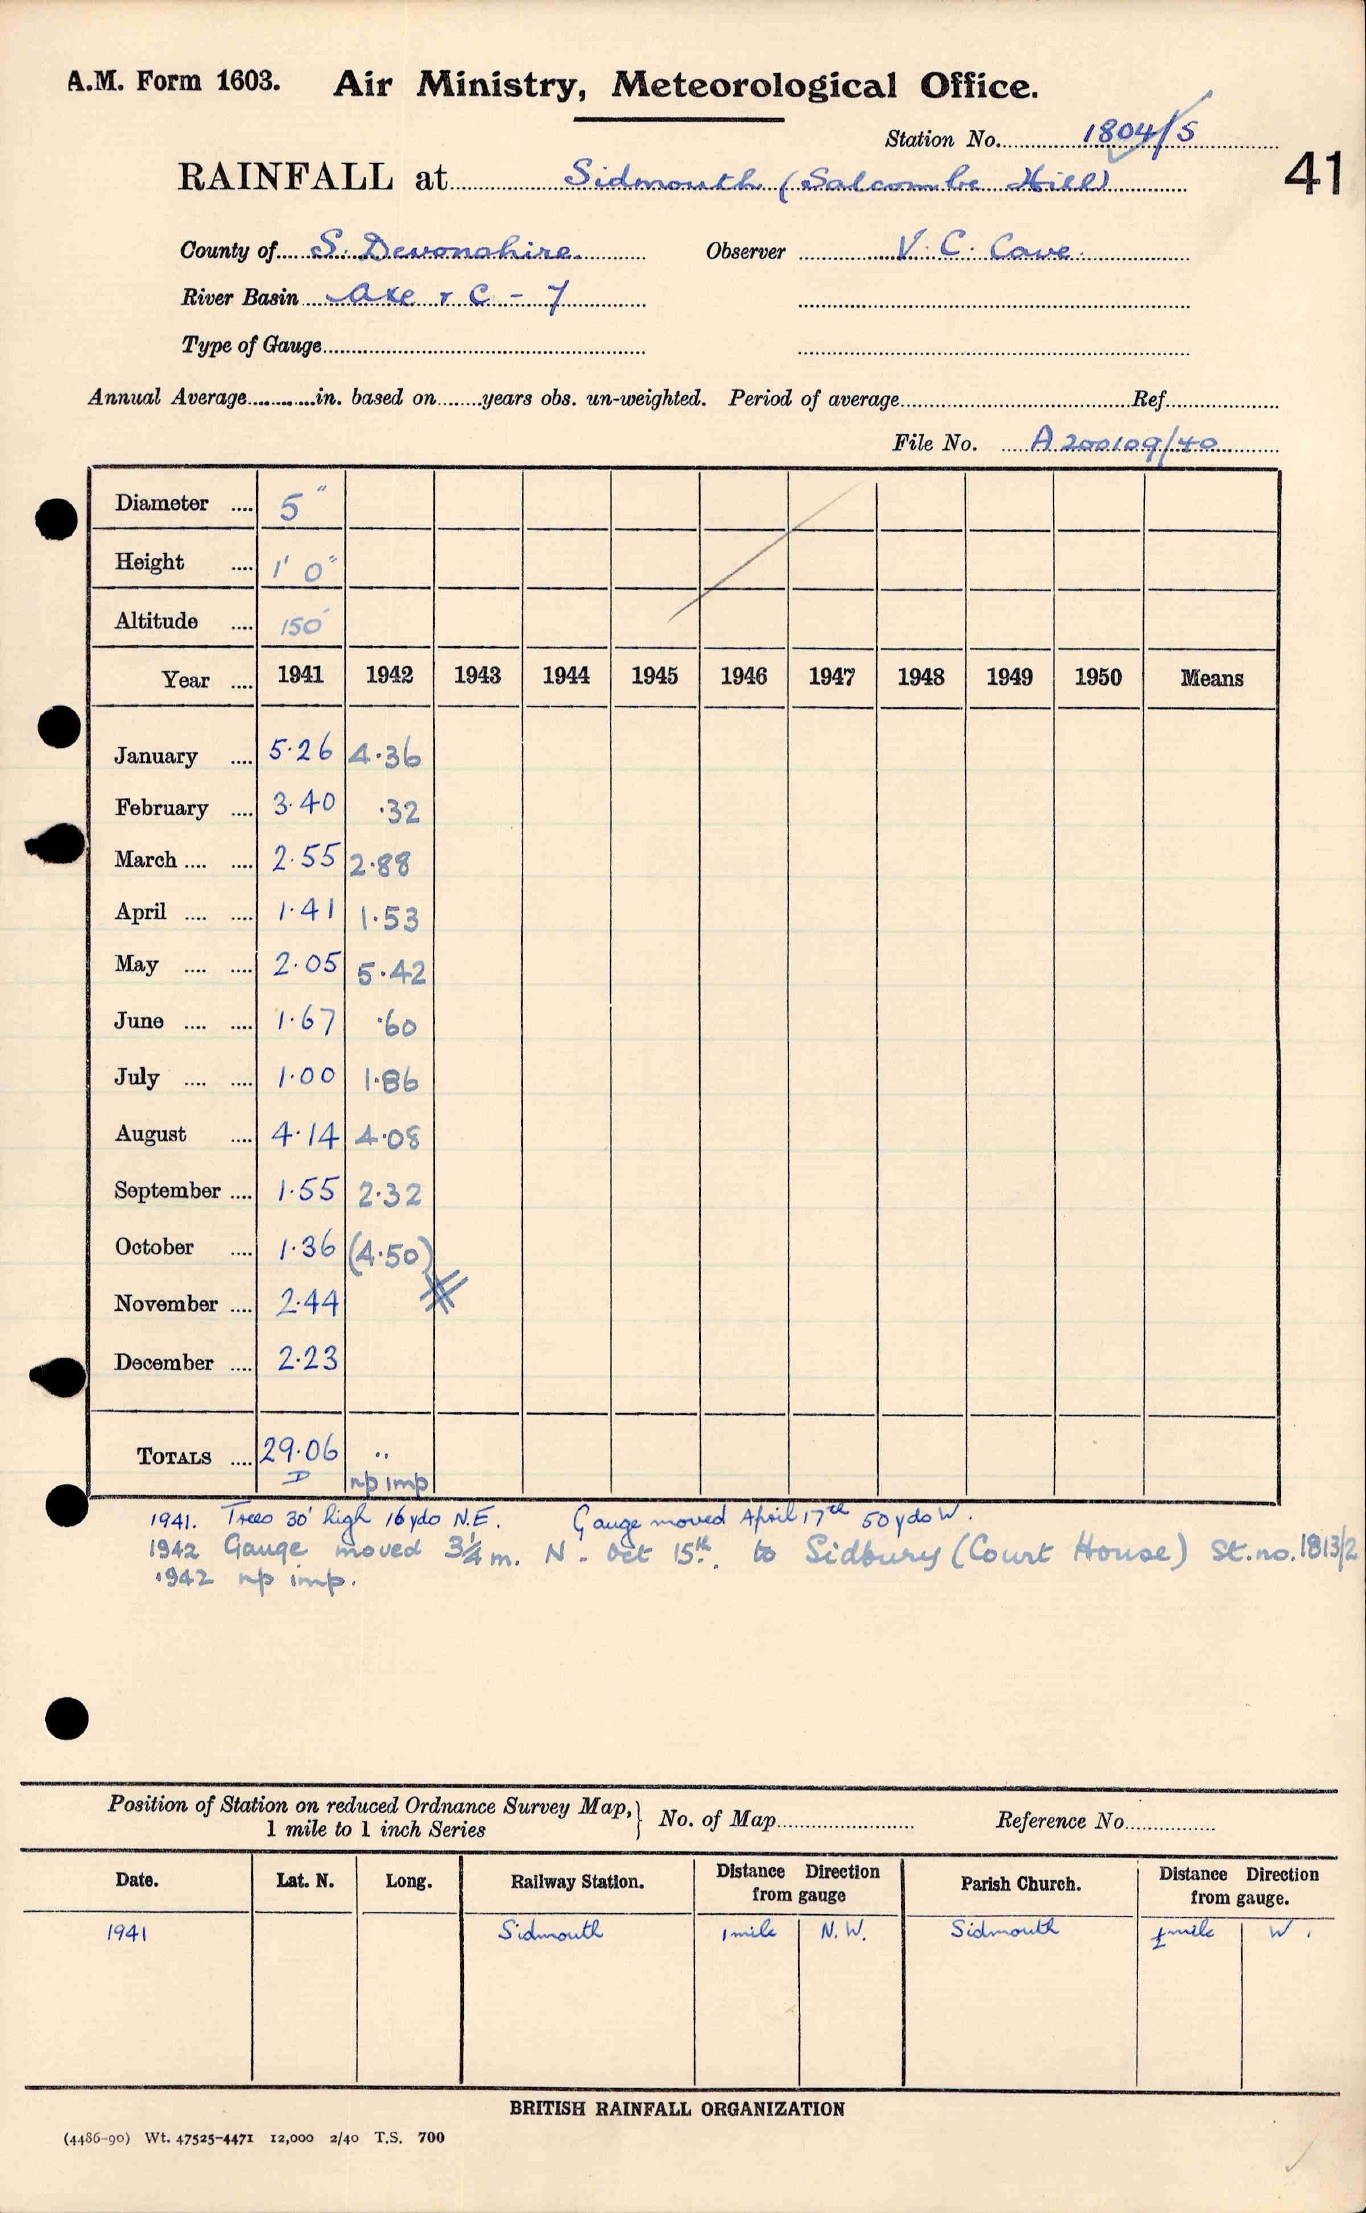 A.M. Form 1603. Air Ministry, Meteorological Office.
Station No. 1804/5
41
RAINFALL at Sidmouth (Salcombe Hill)
County of S. Devonshire. Observer V. C. Cave.
River Basin Axe & C - 7
Type of Gauge
Annual Average in. based on years obs. un-weighted. Period of average Ref.
File No. A200109/40
Diameter .... 5"
Height .... 1' 0"
Altitude .... 150'
Year .... 1941 1942 1943 1944 1945 1946 1947 1948 1949 1950 Means
January .... 5·26 4·36
February .... 3·40 ·32
March .... .... 2·55 2·88
April .... .... 1·41 1·53
May .... .... 2·05 5·42
June .... .... 1·67 ·60
July .... .... 1·00 1·86
August .... 4·14 4·08
September .... 1·55 2·32
October .... 1·36 (4·50)
November .... 2·44
December .... 2·23
TOTALS .... 29·06 ..
D np imp
1941. Trees 30' high 16 yds N.E. Gauge moved April 17th 50 yds W.
1942 Gauge moved 3¼ m. N - Oct 15th. to Sidbury (Court House) St. no. 1813/2
1942 np imp.
Position of Station on reduced Ordnance Survey Map,} No. of Map Reference No.
1 mile to 1 inch Series
Date. Lat. N. Long. Railway Station. Distance Direction from gauge Parish Church. Distance Direction from gauge.
1941 Sidmouth 1 mile N.W. Sidmouth ½ mile W.
BRITISH RAINFALL ORGANIZATION
(4486-90) Wt. 47525-4471 12,000 2/40 T.S. 700